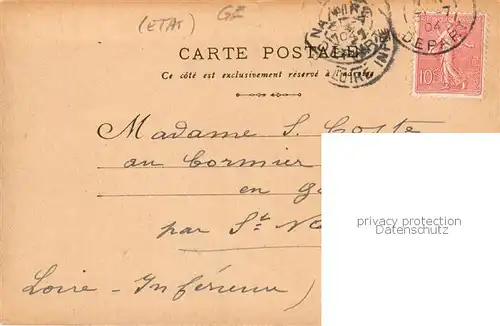 (ETAT) GF
CARTE POSTALE
Ce côté est exclusivement réservé à l'adresse
10
DEPART
LOIRE INFRE
Madame S. Coste
au Cormier
en
par St
Loire-Inférieure)
privacy protection
Datenschutz